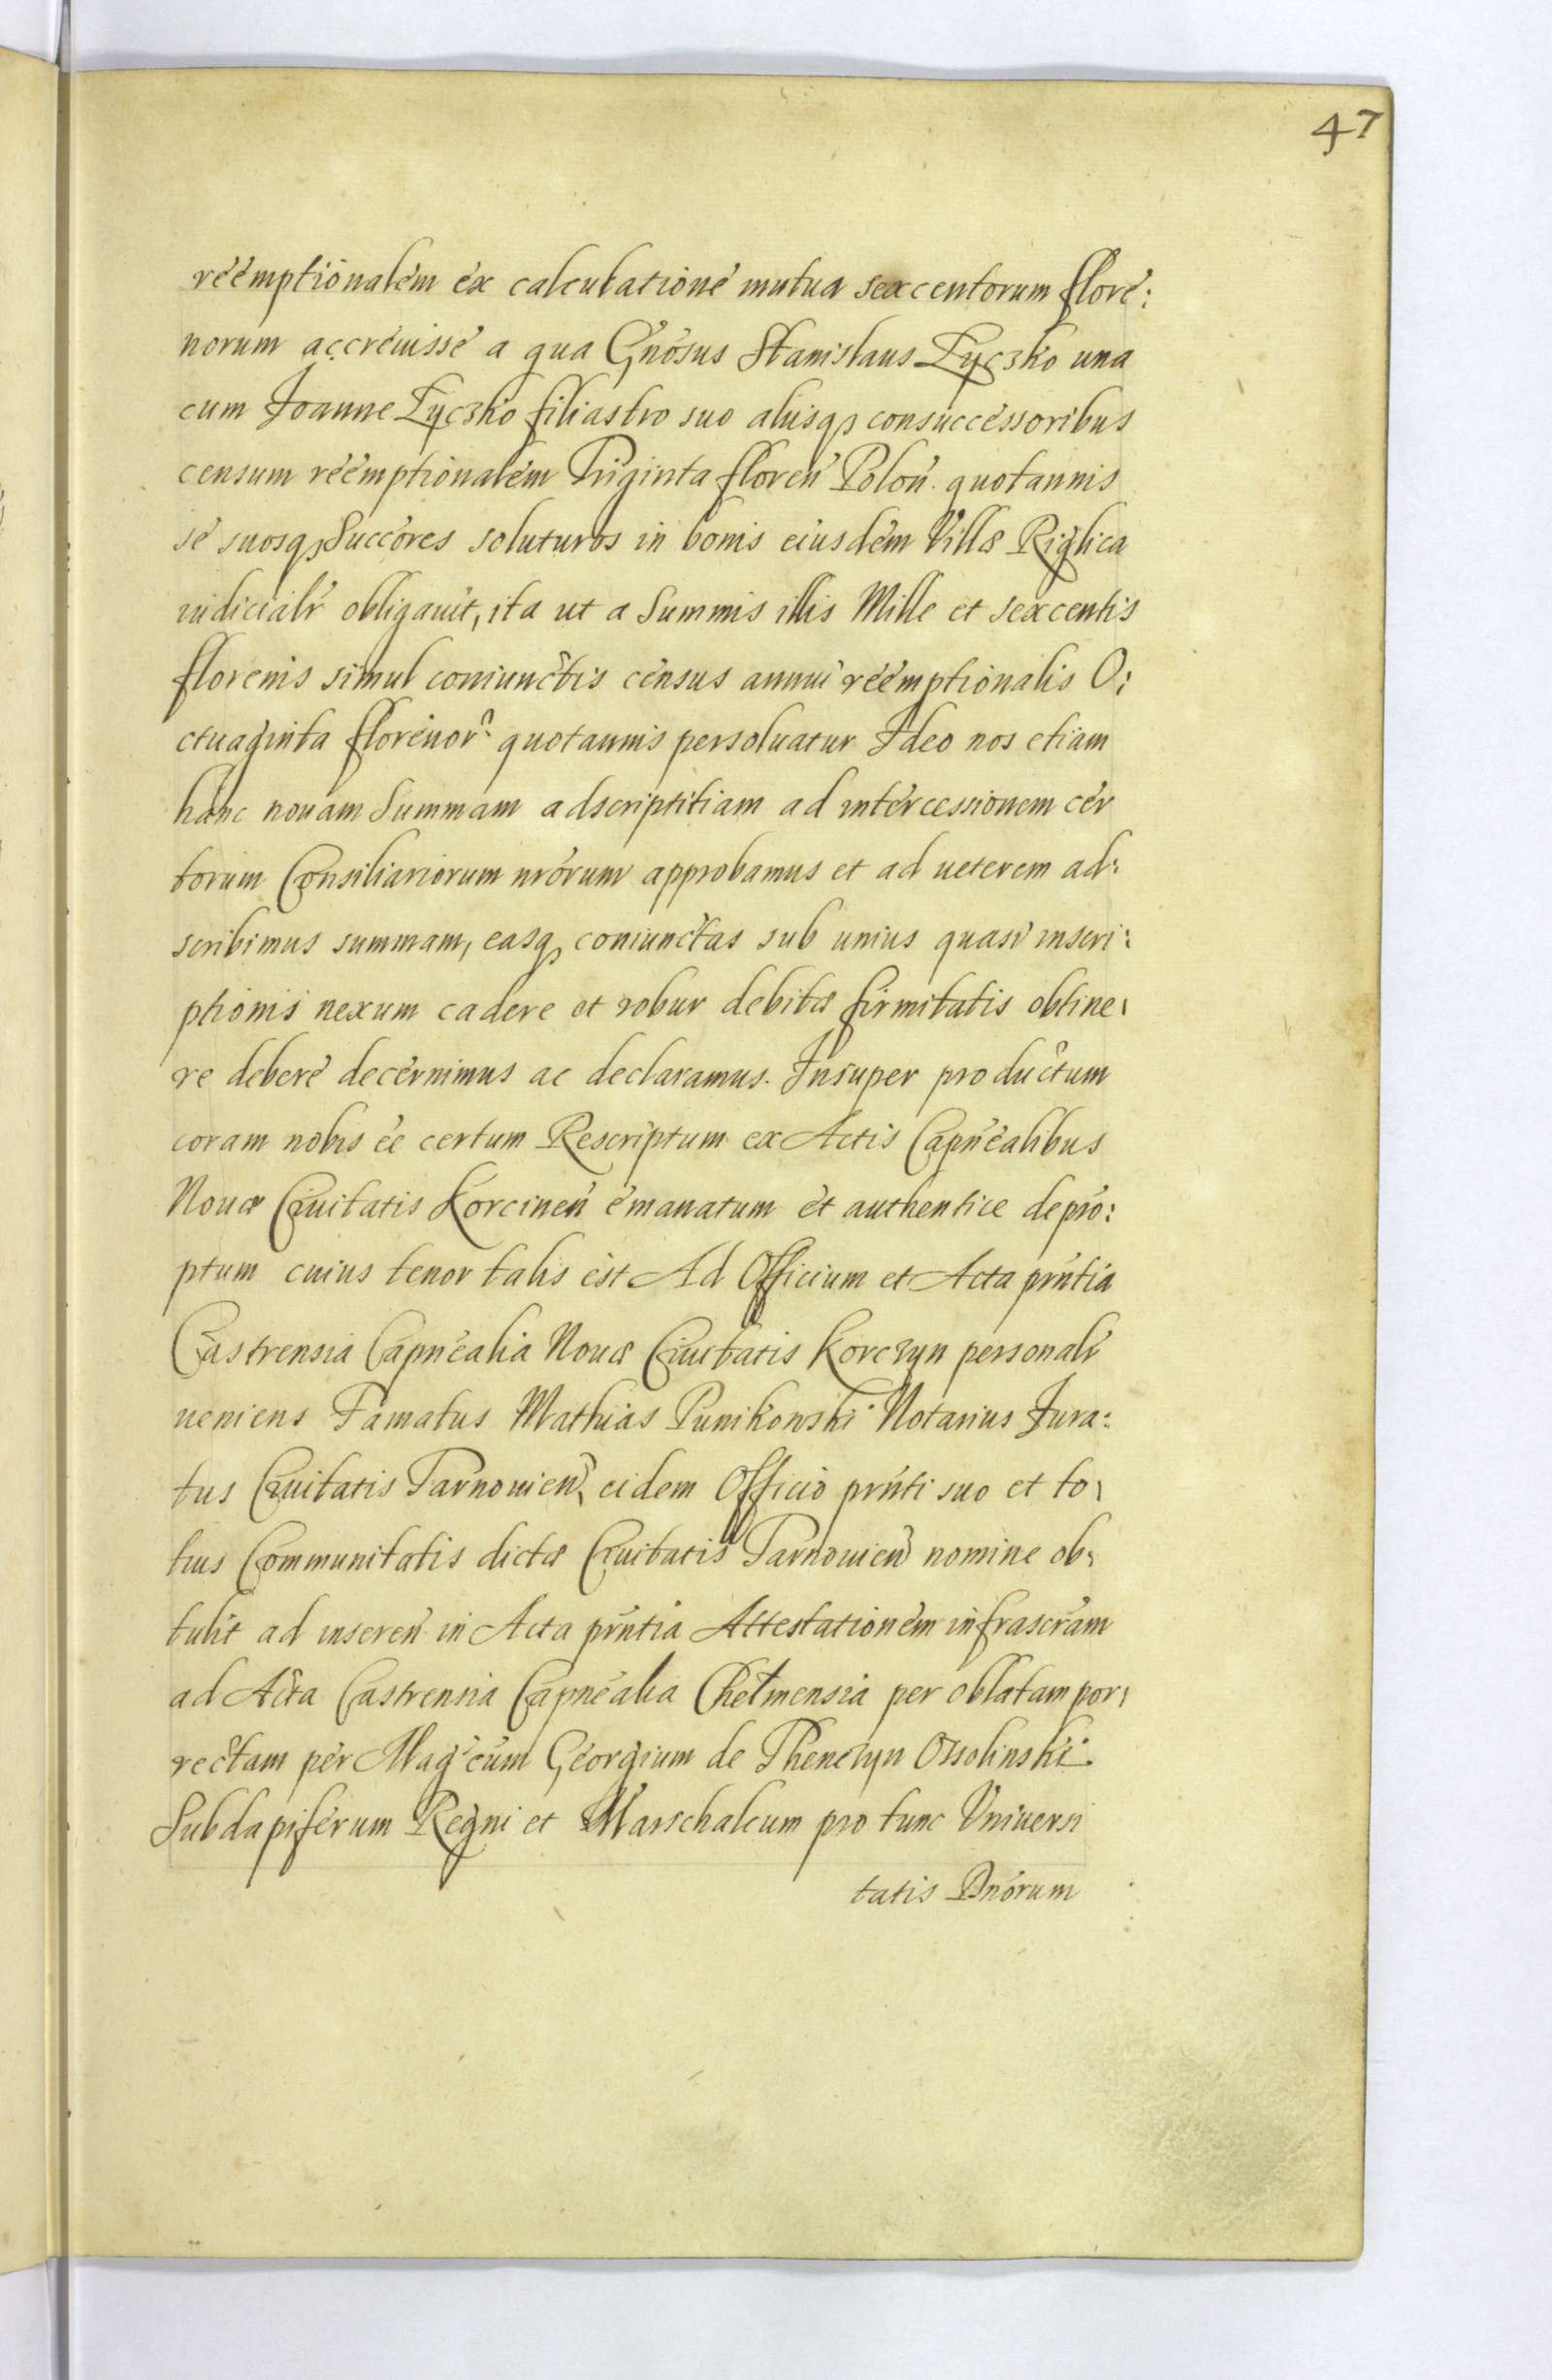 47
réemptionalem ex calculatione mutua sexcentorum flore:
norum accreuisse a qua Gnosus Stanislaus Łyczko una
cum Joanne Łyczko filiastro suo aliisq₃ consuccessoribus
censum reemptionalem Triginta floren Polon. quotannis
se suosq₃ Succores soluturos in bonis eiusdem Villæ Riglica
iudicialr obligauit, ita ut a Summis illis Mille et sexcentis
florenis simul coniunctis census annui reemptionalis O:
ctuaginta florenor. quotannis persoluatur Ideo nos etiam
hanc nouam Summam adscriptitiam ad intercessionem cer
torum Consiliariorum nrorum approbamus et ad ueterem ad:
scribimus summam, easq₃ coniunctas sub unius quasi inscri:
ptionis nexum cadere et robur debitæ firmitatis obtine:
re debere decernimus ac declaramus. Insuper productum
coram nobis ee certum Rescriptum ex Actis Capnealibus
Nouæ Ciuitatis Korcinen emanatum et authentice depro:
ptum cuius tenor talis est Ad Officium et Acta prntia
Castrensia Capnealia Nouæ Ciuitatis Korczyn personalr
ueniens Famatus Mathias Punikowski Notarius Jura:
tus Ciuitatis Tarnouien, eidem Officio prnti suo et to:
tius Communitatis dictæ Ciuitatis Tarnouien nomine ob:
tulit ad inseren in Acta prntia Attestationem infrascram
ad Acta Castrensia Capnealia Chełmensia per oblatam por:
rectam per Magcum Georgium de Thenczyn Ossolinski
Subdapiferum Regni et Marschalcum pro tunc Vniuersi
tatis Dnorum